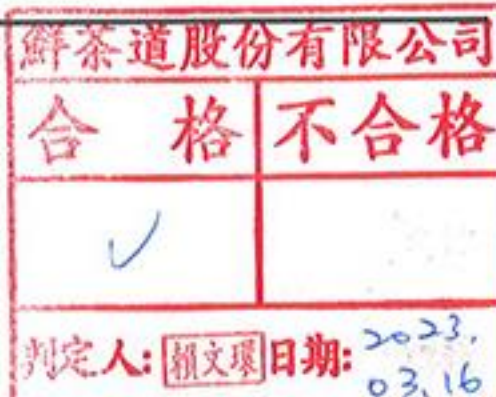 鮮茶道股份有限公司
合格 不合格
✓
判定人: 賴文環 日期: 2023.
03.16